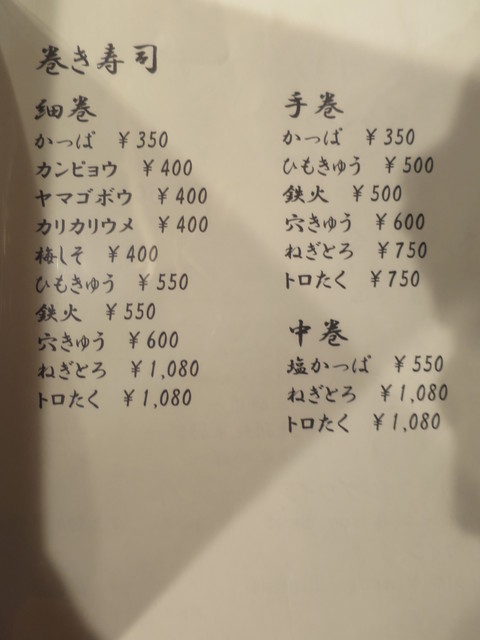 巻き寿司
細巻
かっぱ ¥350
カンピョウ ¥400
ヤマゴボウ ¥400
カリカリウメ ¥400
梅しそ ¥400
ひもきゅう ¥550
鉄火 ¥550
穴きゅう ¥600
ねぎとろ ¥1,080
トロたく ¥1,080
手巻
かっぱ ¥350
ひもきゅう ¥500
鉄火 ¥500
穴きゅう ¥600
ねぎとろ ¥750
トロたく ¥750
中巻
塩かっぱ ¥550
ねぎとろ ¥1,080
トロたく ¥1,080